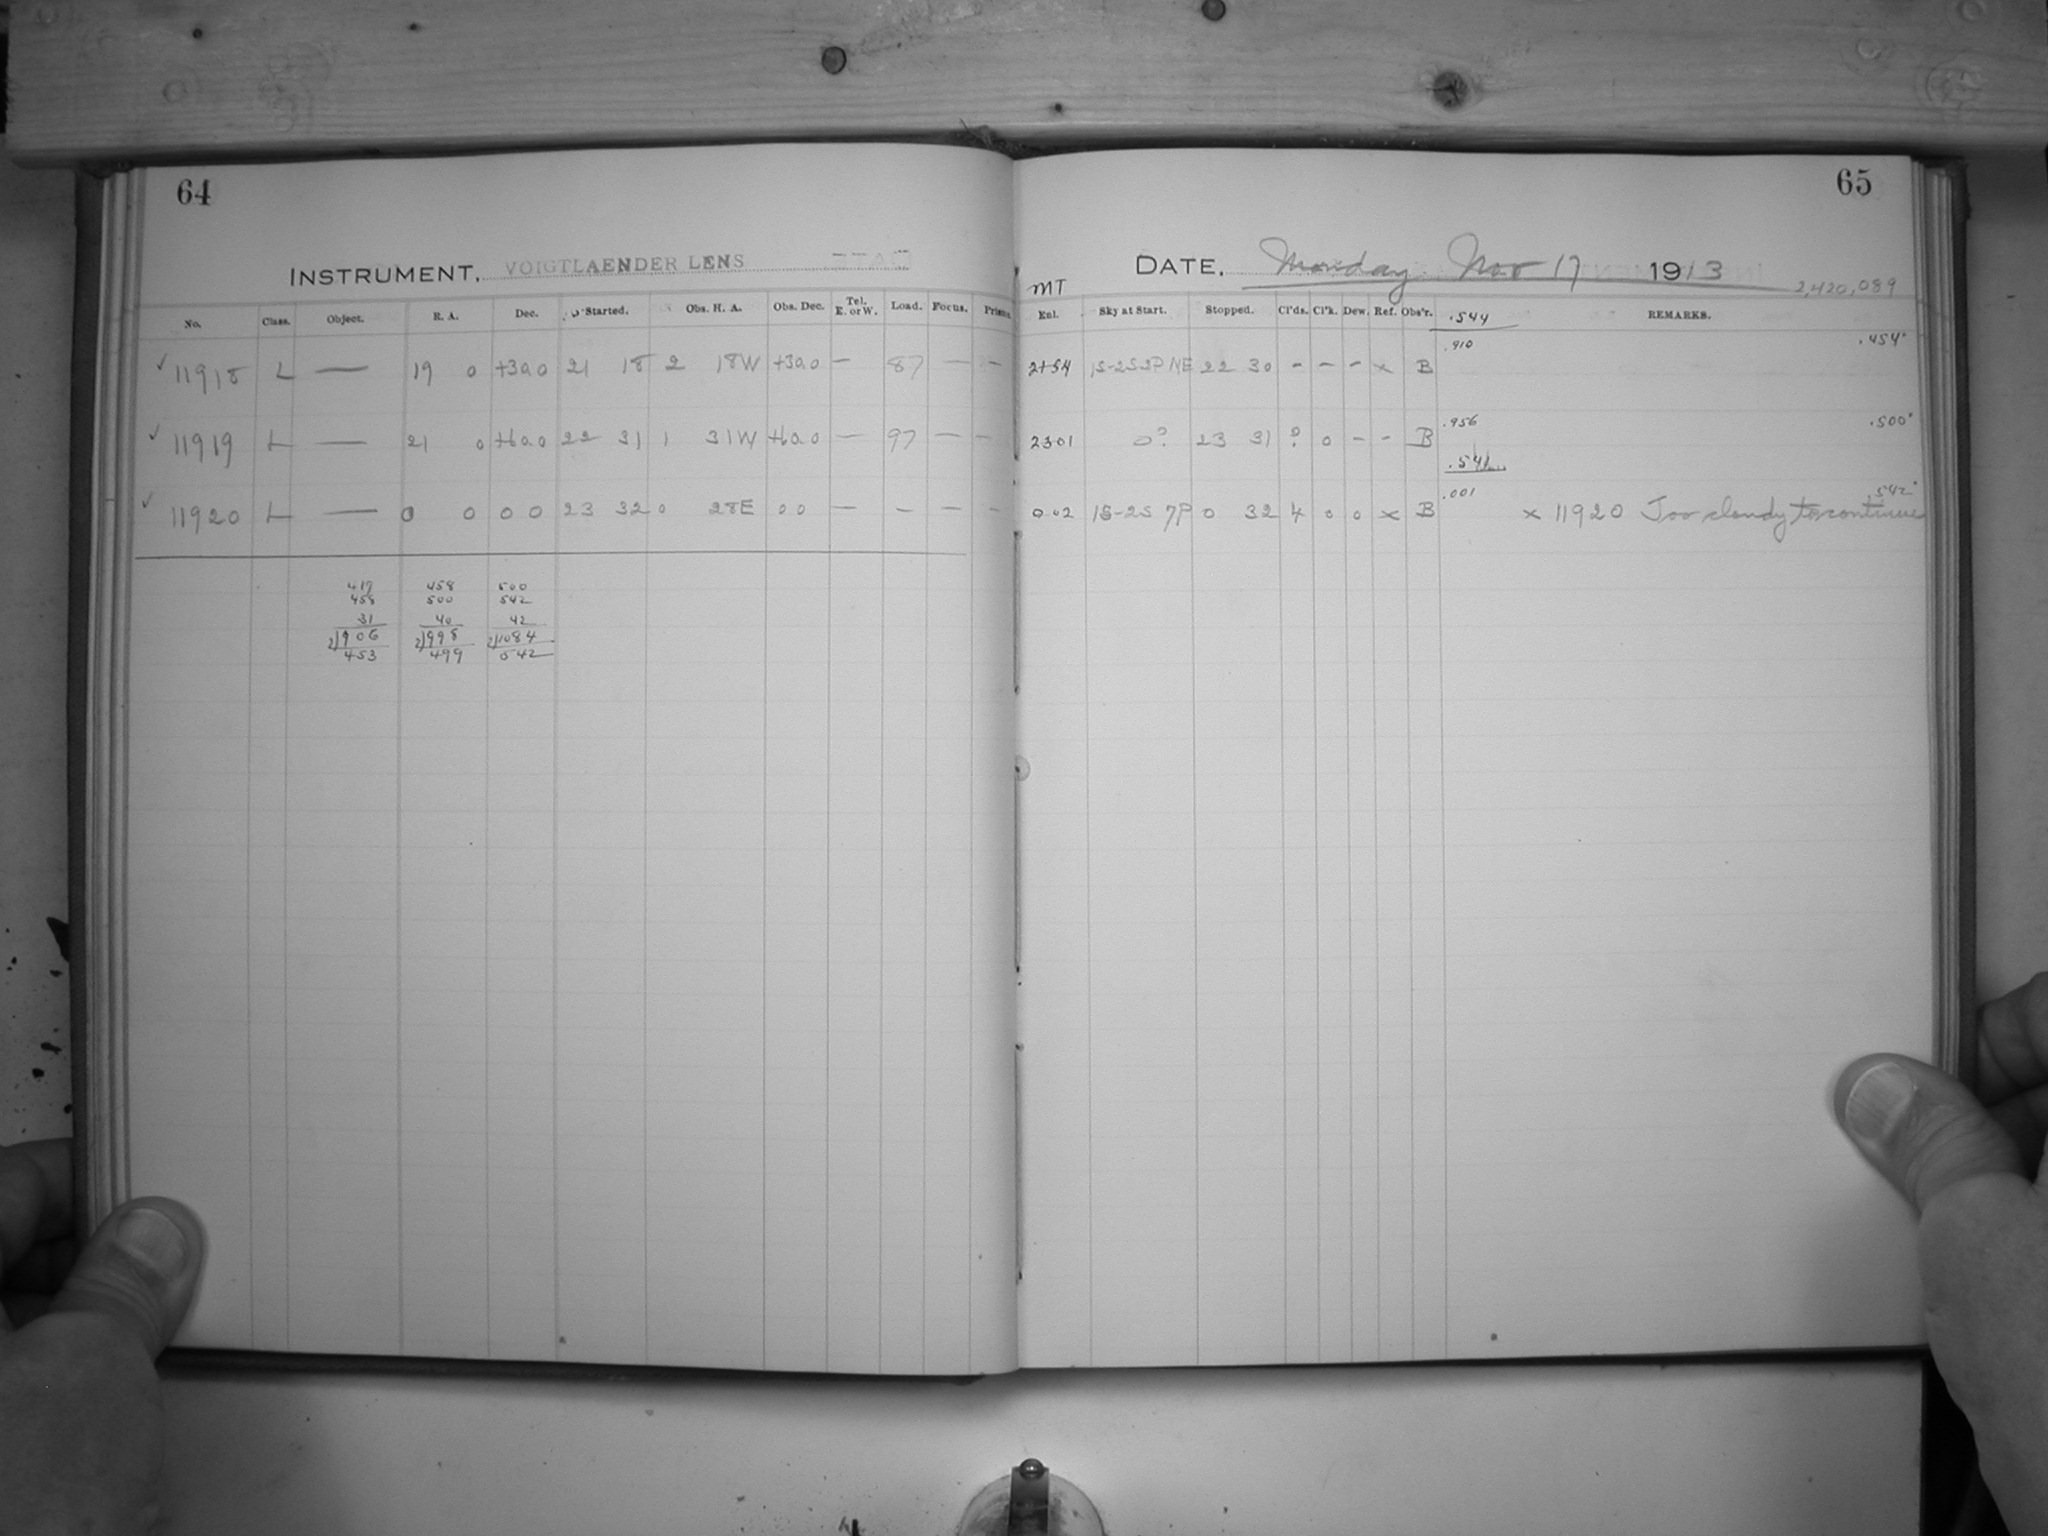 64
INSTRUMENT, VOIGTLAENDER LENS
No. Class. Object. R. A. Dec. Started. Obs. H. A. Obs. Dec. Tel. E. or W. Load. Focus. Prism
✓ 11918 L — 19 0 +30.0 21 18 2 18W +30.0 — 87 — —
✓ 11919 L — 21 0 +60.0 22 31 1 31W +60.0 — 97 — —
✓ 11920 L — 0 0 0 0 23 32 0 28E 0 0 — — — —
417 458 500
458 500 542
31 40 42
2)906 2)998 2)1084
453 499 542
65
DATE, Monday Nov 17 1913
MT 2,420,089
Exl. Sky at Start. Stopped. Cl'ds. Cl'k. Dew. Ref. Obs'r. .544 REMARKS.
.910 .454
2154 1S-2S 3P NE 22 30 - - - x B
.956 .500
2301 0? 23 31 ? 0 - - B
.541
.001 .542
002 1S-2S 7P 0 32 4 0 0 x B x 11920 Too cloudy to continue